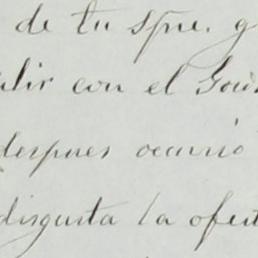 de tu spre. y
ulir con el Gou
despues ocurrió
disgusta la ofert